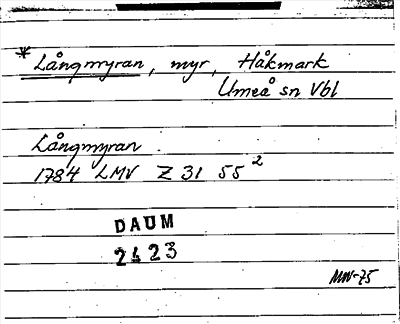 * Långmyran, myr, Håkmark
Umeå sn Vbl
Långmyran
1784 LMV Z 31 55²
DAUM
2423
MW-75